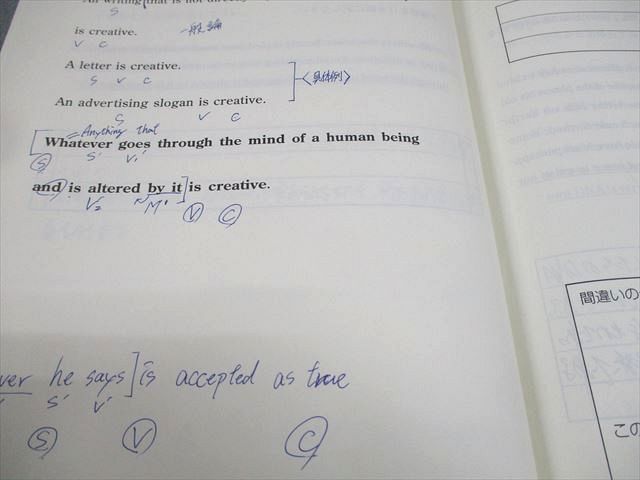 All writing that is not direc
S
is creative.
V C
一般論
A letter is creative.
S V C
<具体例>
An advertising slogan is creative.
S V C
= Anything that
Whatever goes through the mind of a human being
S S' V₁'
and is altered by it is creative.
V₂ M' V C
ver he says] is accepted as true
S' V'
S V C
間違いの
この